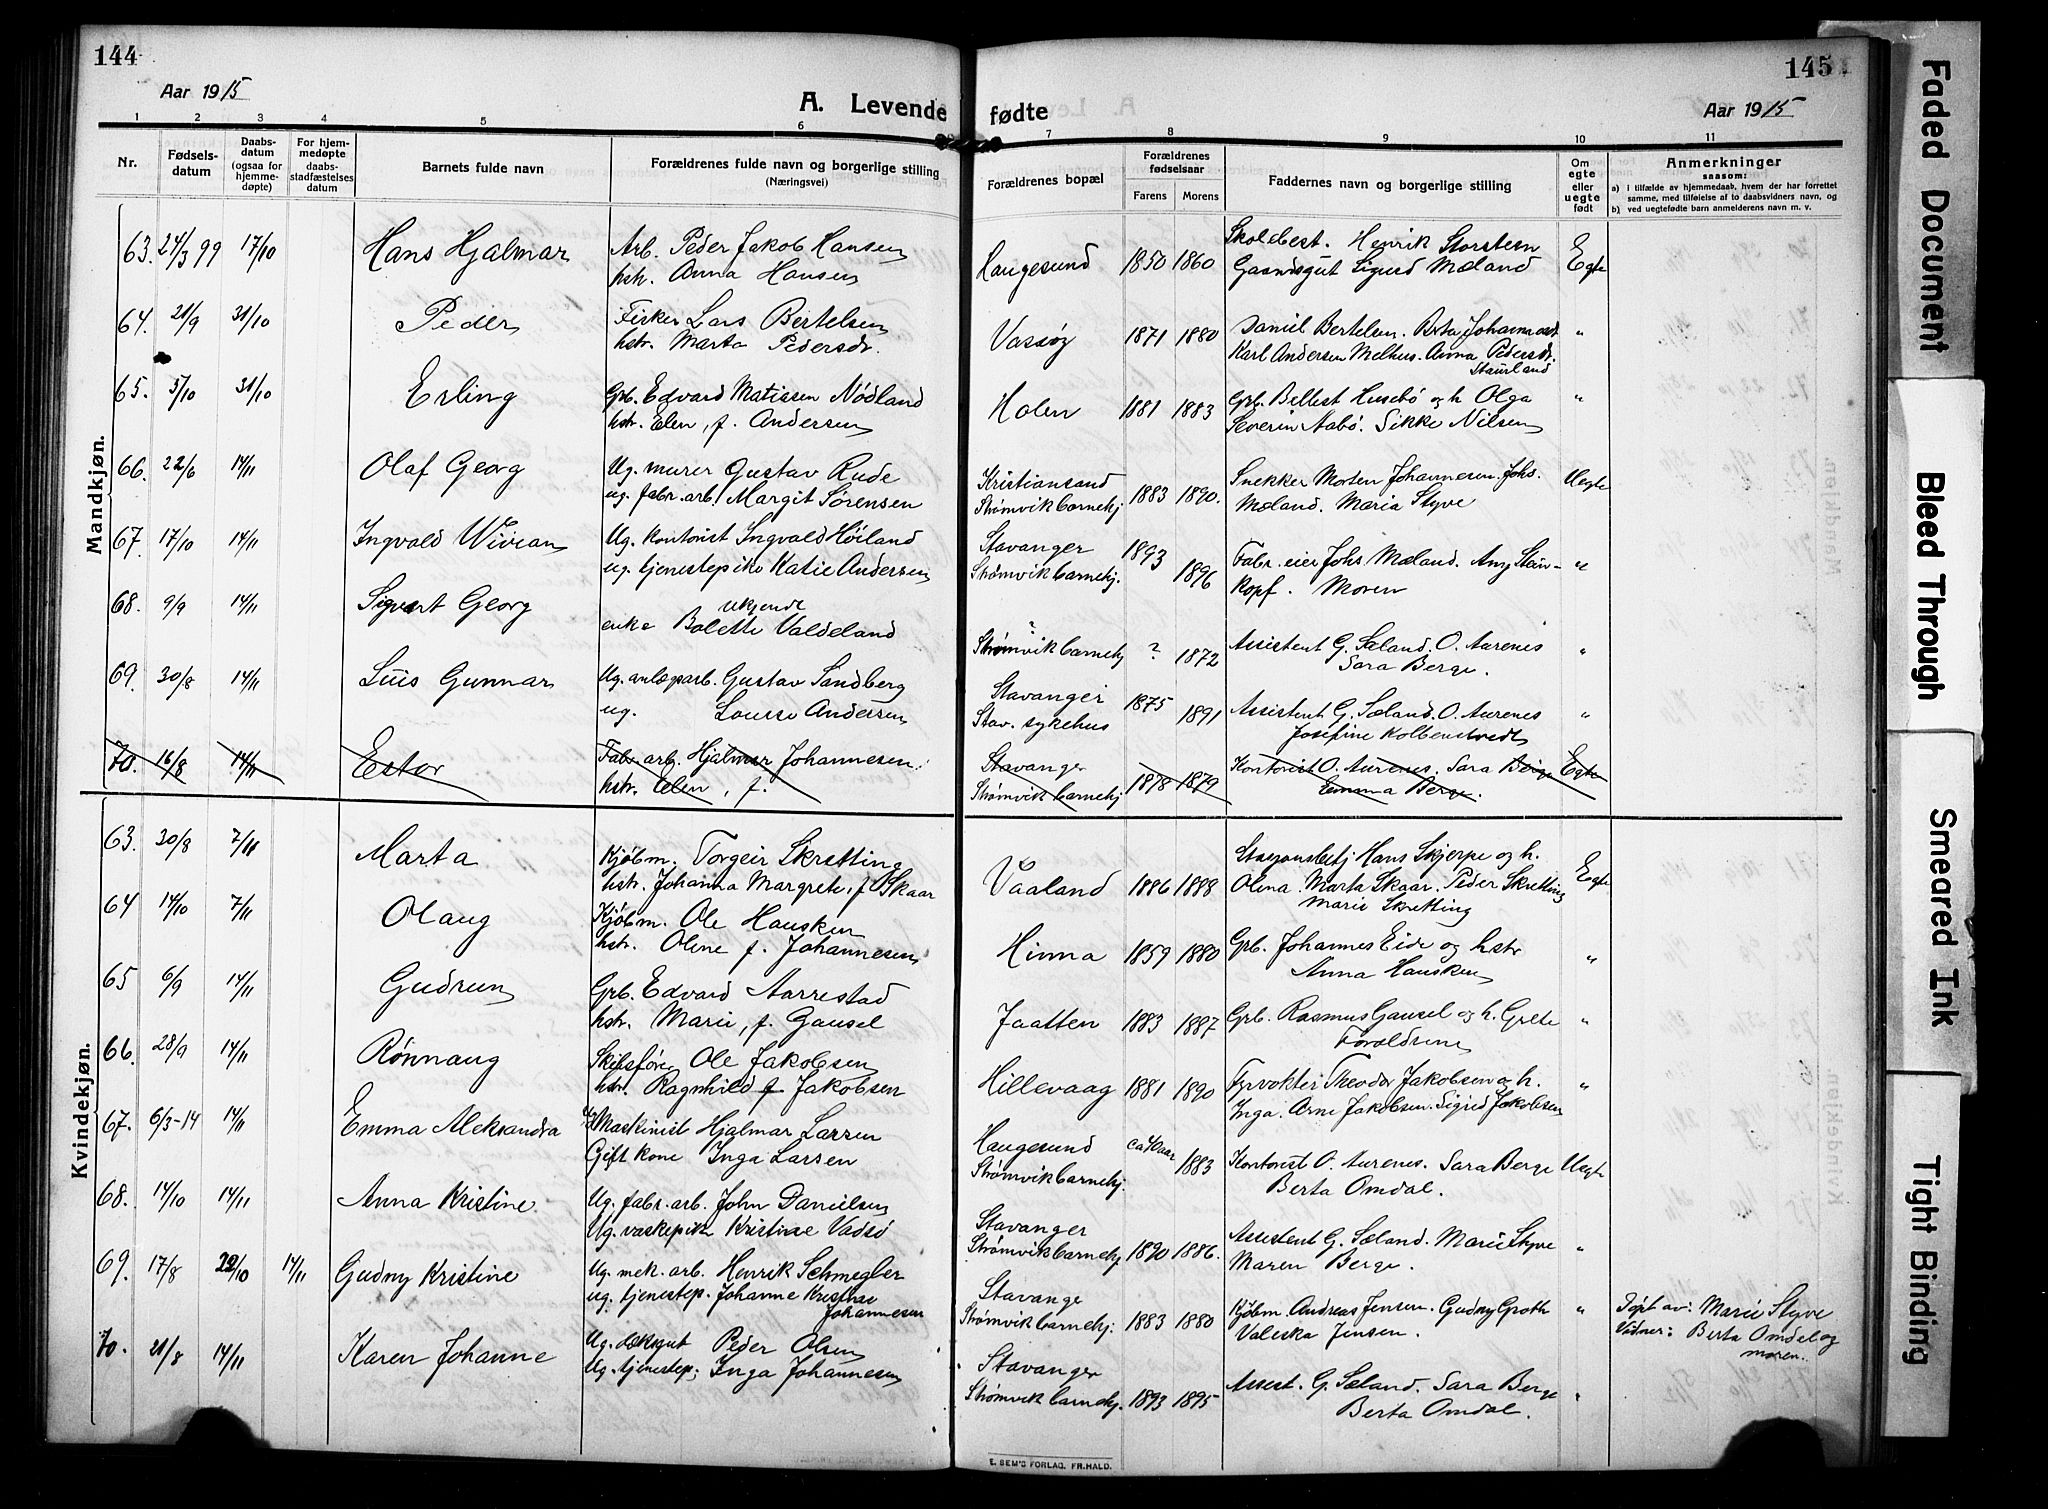 144
Aar 1915
A. Levende
1 2 3 4 5 6
Nr.
Fødsels-
datum
Daabs-
datum
(ogsaa for
hjemme-
døpte)
For hjem-
medøpte
daabs-
stadfæstelses
datum
Barnets fulde navn
Forældrenes fulde navn og borgerlige stilling
(Næringsvei)
Mandkjøn.
63. 24/3 99 17/10 Hans Hjalmar Arb. Peder Jakob Hansen
hstr. Anna Hansen
64. 21/9 31/10 Peder Fisker Lars Bertelsen
hstr. Marta Pedersdr.
65. 5/10 31/10 Erling Grb. Edvard Matissen Nödland
hstr. Elen, f. Andersen
66. 22/6 14/11 Olaf Georg Ug. murer Gustav Rude
ug. fabr. arb. Margit Sørensen
67. 17/10 14/11 Ingvald Wivian Ug. kontorist Ingvald Höiland
ug. tjenestepike Katie Andersen
68. 9/9 14/11 Sigvart Georg ukjendt
enke Bolette Valdeland
69. 30/8 14/11 Luis Gunnar Ug. anlægsarb. Gustav Sandberg
ug. Lousse Andersen
70. 16/8 14/11 Ester Fabr. arb. Hjalmar Johannesen
hstr. Elen, f.
Kvindekjøn.
63. 30/8 7/11 Marta Kjøbm. Torgeir Skretting
hstr. Johanna Margrete, f. Skaar
64 14/10 7/11 Olaug Kjøbm. Ole Hausken
hstr. Olene f. Johannesen
65 6/9 14/11 Gudrun Grb. Edvard Aarrestad
hstr. Marie, f. Gausel
66. 28/9 14/11 Rönnaug Skibsfører Ole Jakobsen
hstr. Ragnhild f Jakobsen
67. 6/3-14 14/11 Emma Aleksandra Maskinist Hjalmar Larsen
Gift kone Inga Larsen
68. 14/10 14/11 Anna Kristine Ug. fabr. arb. John Danielsen
Ug. vaskepike Kristine Vadsö
69. 17/8 22/10 14/11 Gudny Kristine Ug. mek. arb. Henrik Schmegler
ug. tjenestep. Johanne Kristine
Johannesen
70. 21/8 14/11 Karen Johanne Ug. dæksgut Peder Olsen
Ug. tjenestep. Inga Johannesen
145
fødte
Aar 1915
7 8 9 10 11
Forældrenes bopæl
Forældrenes
fødselsaar
Farens Morens
Faddernes navn og borgerlige stilling
Om
egte
eller
uegte
født
Anmerkninger
saasom:
a) i tilfælde av hjemmedaab, hvem der har forrettet
samme, med tilføielse af to daabsvidners navn, og
b) ved uegtefødte barn anmelderens navn m. v.
Haugesund 1850 1860 Skolebest. Henrik Storsteen
Gaardsgut Sigurd Mæland Egte
Vassöy 1871 1880 Daniel Bertelsen. Berta Johannesdr.
Karl Andersen Melhus. Anna Pedersdr.
Staurland "
Holen 1881 1883 Grb. Bellest Husebö og h Olga
Severin Aabö. Sikke Nilsen "
Kristiansand
Strømvik barnehj 1883 1890. Snekker Morten Johannesen. Johs.
Mæland. Maria Styve Uegte
Stavanger
Strømvik barnehj. 1893 1896 Fabr. eier Johs Mæland. Amy Stein-
kopf. Moren "
?
Strømvik barnehj ? 1872 Assistent G. Sæland. O. Aurenes
Sara Berge. "
Stavanger
Stav. sykehus 1875 1891 Assistent G. Sæland. O. Aurenes
Josefine Kolbenstvedt "
Stavanger
Strømvik barnehj 1878 1879 Kontorist O. Aurenes. Sara Berge
Emma Berge. Egte
Vaaland 1886 1888 Stasjonsbetj Hans Skjerpe og h.
Olena. Marta Skaar. Peder Skretting
Marie Skretting Egte
Hinna 1859 1880 Grb. Johannes Eide og hstr
Anna Hausken "
Jaatten 1883 1887 Grb. Rasmus Gausel og h. Grete
Foroldrene "
Hillevaag 1881 1890 Fyrvokter Theodor Jakobsen og h.
Inga. Arne Jakobsen. Sigrid Jakobsen "
Haugesund
Strømvik barnehj. ca 40 aar 1883 Kontorist O. Aurenes. Sara Berge
Berta Omdal. Uegte
Stavanger
Strømvik barnehj 1890 1886. Assistent G. Sæland. Marie Styve
Maren Berge. "
Stavanger
Strømvik barnehj. 1883 1880 Kjøbm. Andreas Jensen. Gudny Groth
Valeska Jensen. " Döpt av: Marie Styve
Vidner: Berta Omdal og
moren.
Stavanger
Strømvik barnehj. 1893 1895 Assist. G. Sæland. Sara Berge
Berta Omdal. "
E. SEM'S FORLAG, FR.HALD.
Faded Document
Bleed Through
Smeared Ink
Tight Binding